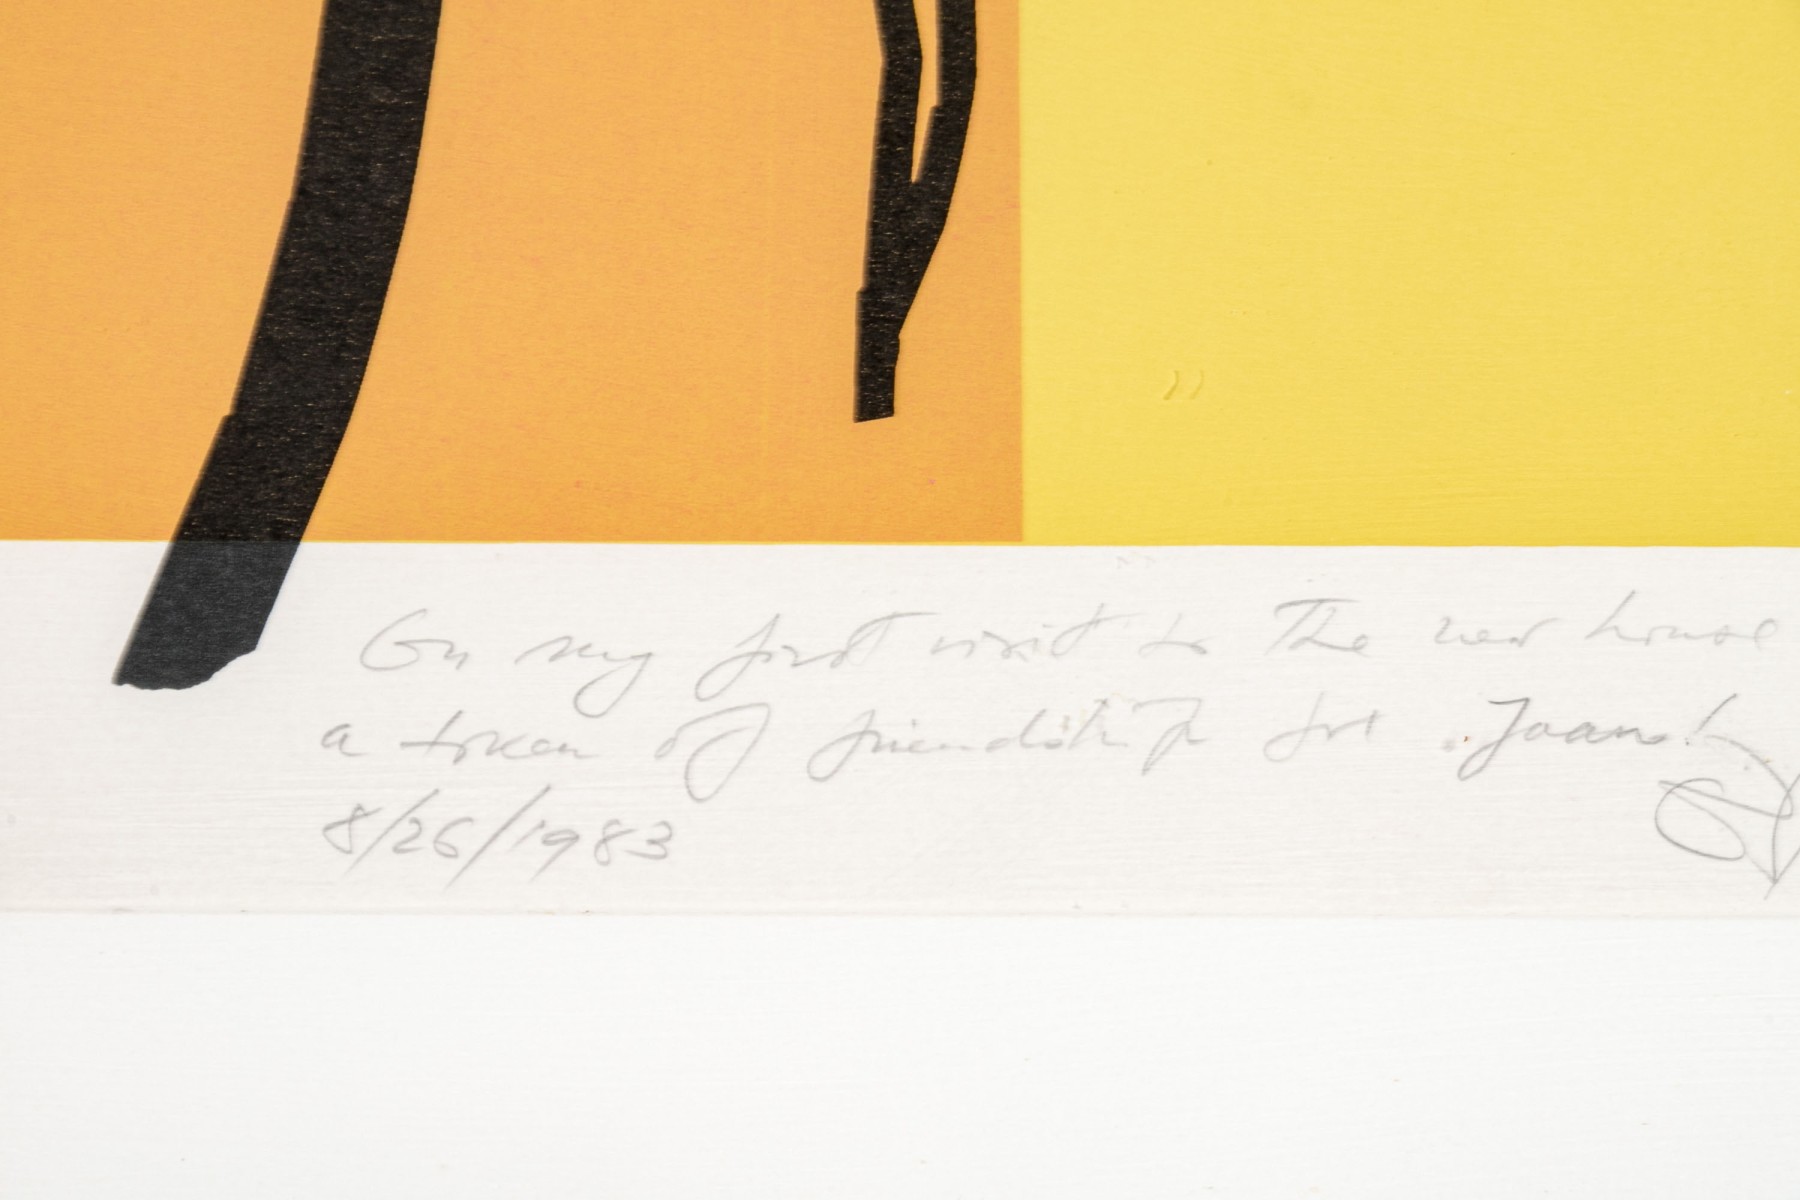 On my first visit to The new house
a token of friendship for Joan!
8/26/1983